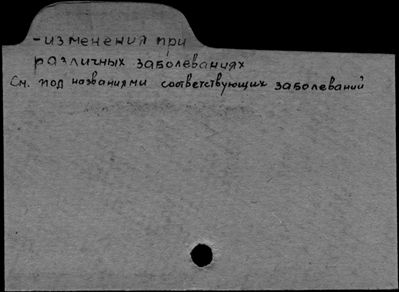 -изменения при
различных заболеваниях
См. под названиями соответствующих заболеваний